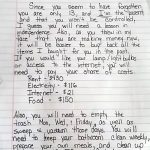 Since you seem to have forgotten
you are only 13, and I'm the parent
and that you won't be controlled,
I guess you will need a lesson in
independence. Also, as you threw in my
face that you are making money now,
it will be easier to buy back all the
items I bought for you in the past.
If you would like your lamp/lightbulbs
or access to the internet you will
need to pay your share of costs.
Rent - $430
Electricity - $116
Internet - $21
Food - $150
Also, you will need to empty the
trash Mon, Wed, Friday, as well as
sweep & vacuum those days. You will
need to keep your bathroom clean weekly,
prepare your own meals, and clean up